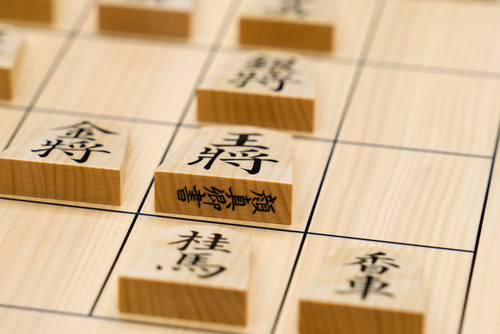 銀将
金将
王将
顔真卿書
桂馬
香車